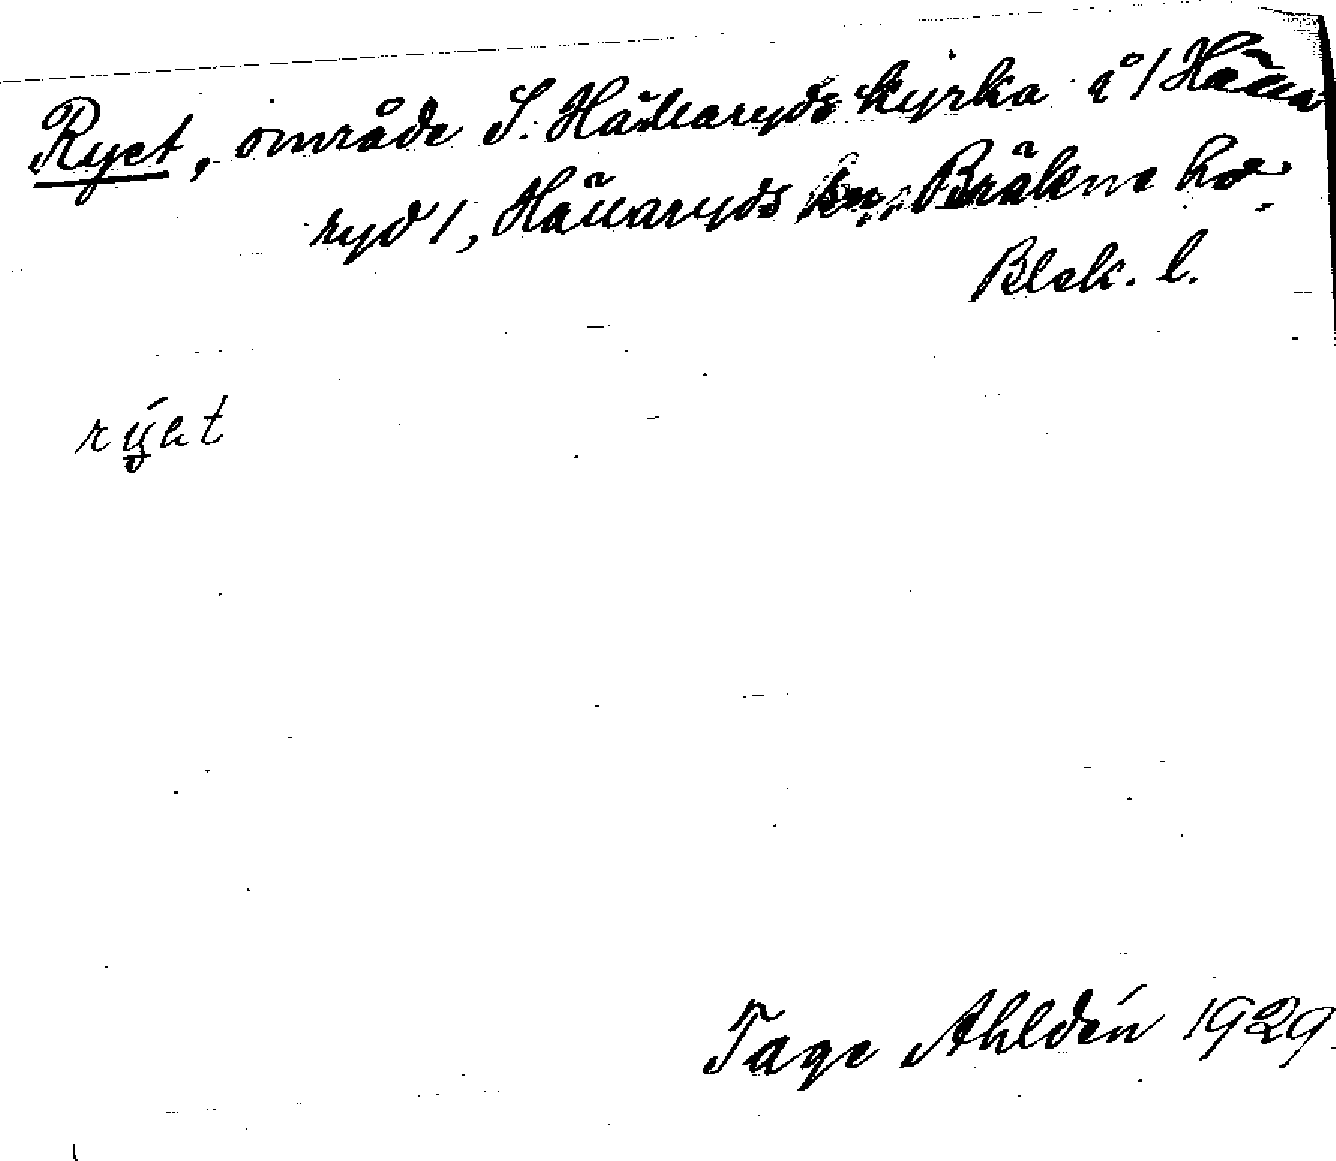 Ryet, område S. Hällaryds kyrka å 1 Hälla
ryd 1, Hällaryds sn, Bräkne hd
Blek. l.
Tage Ahldén 1929